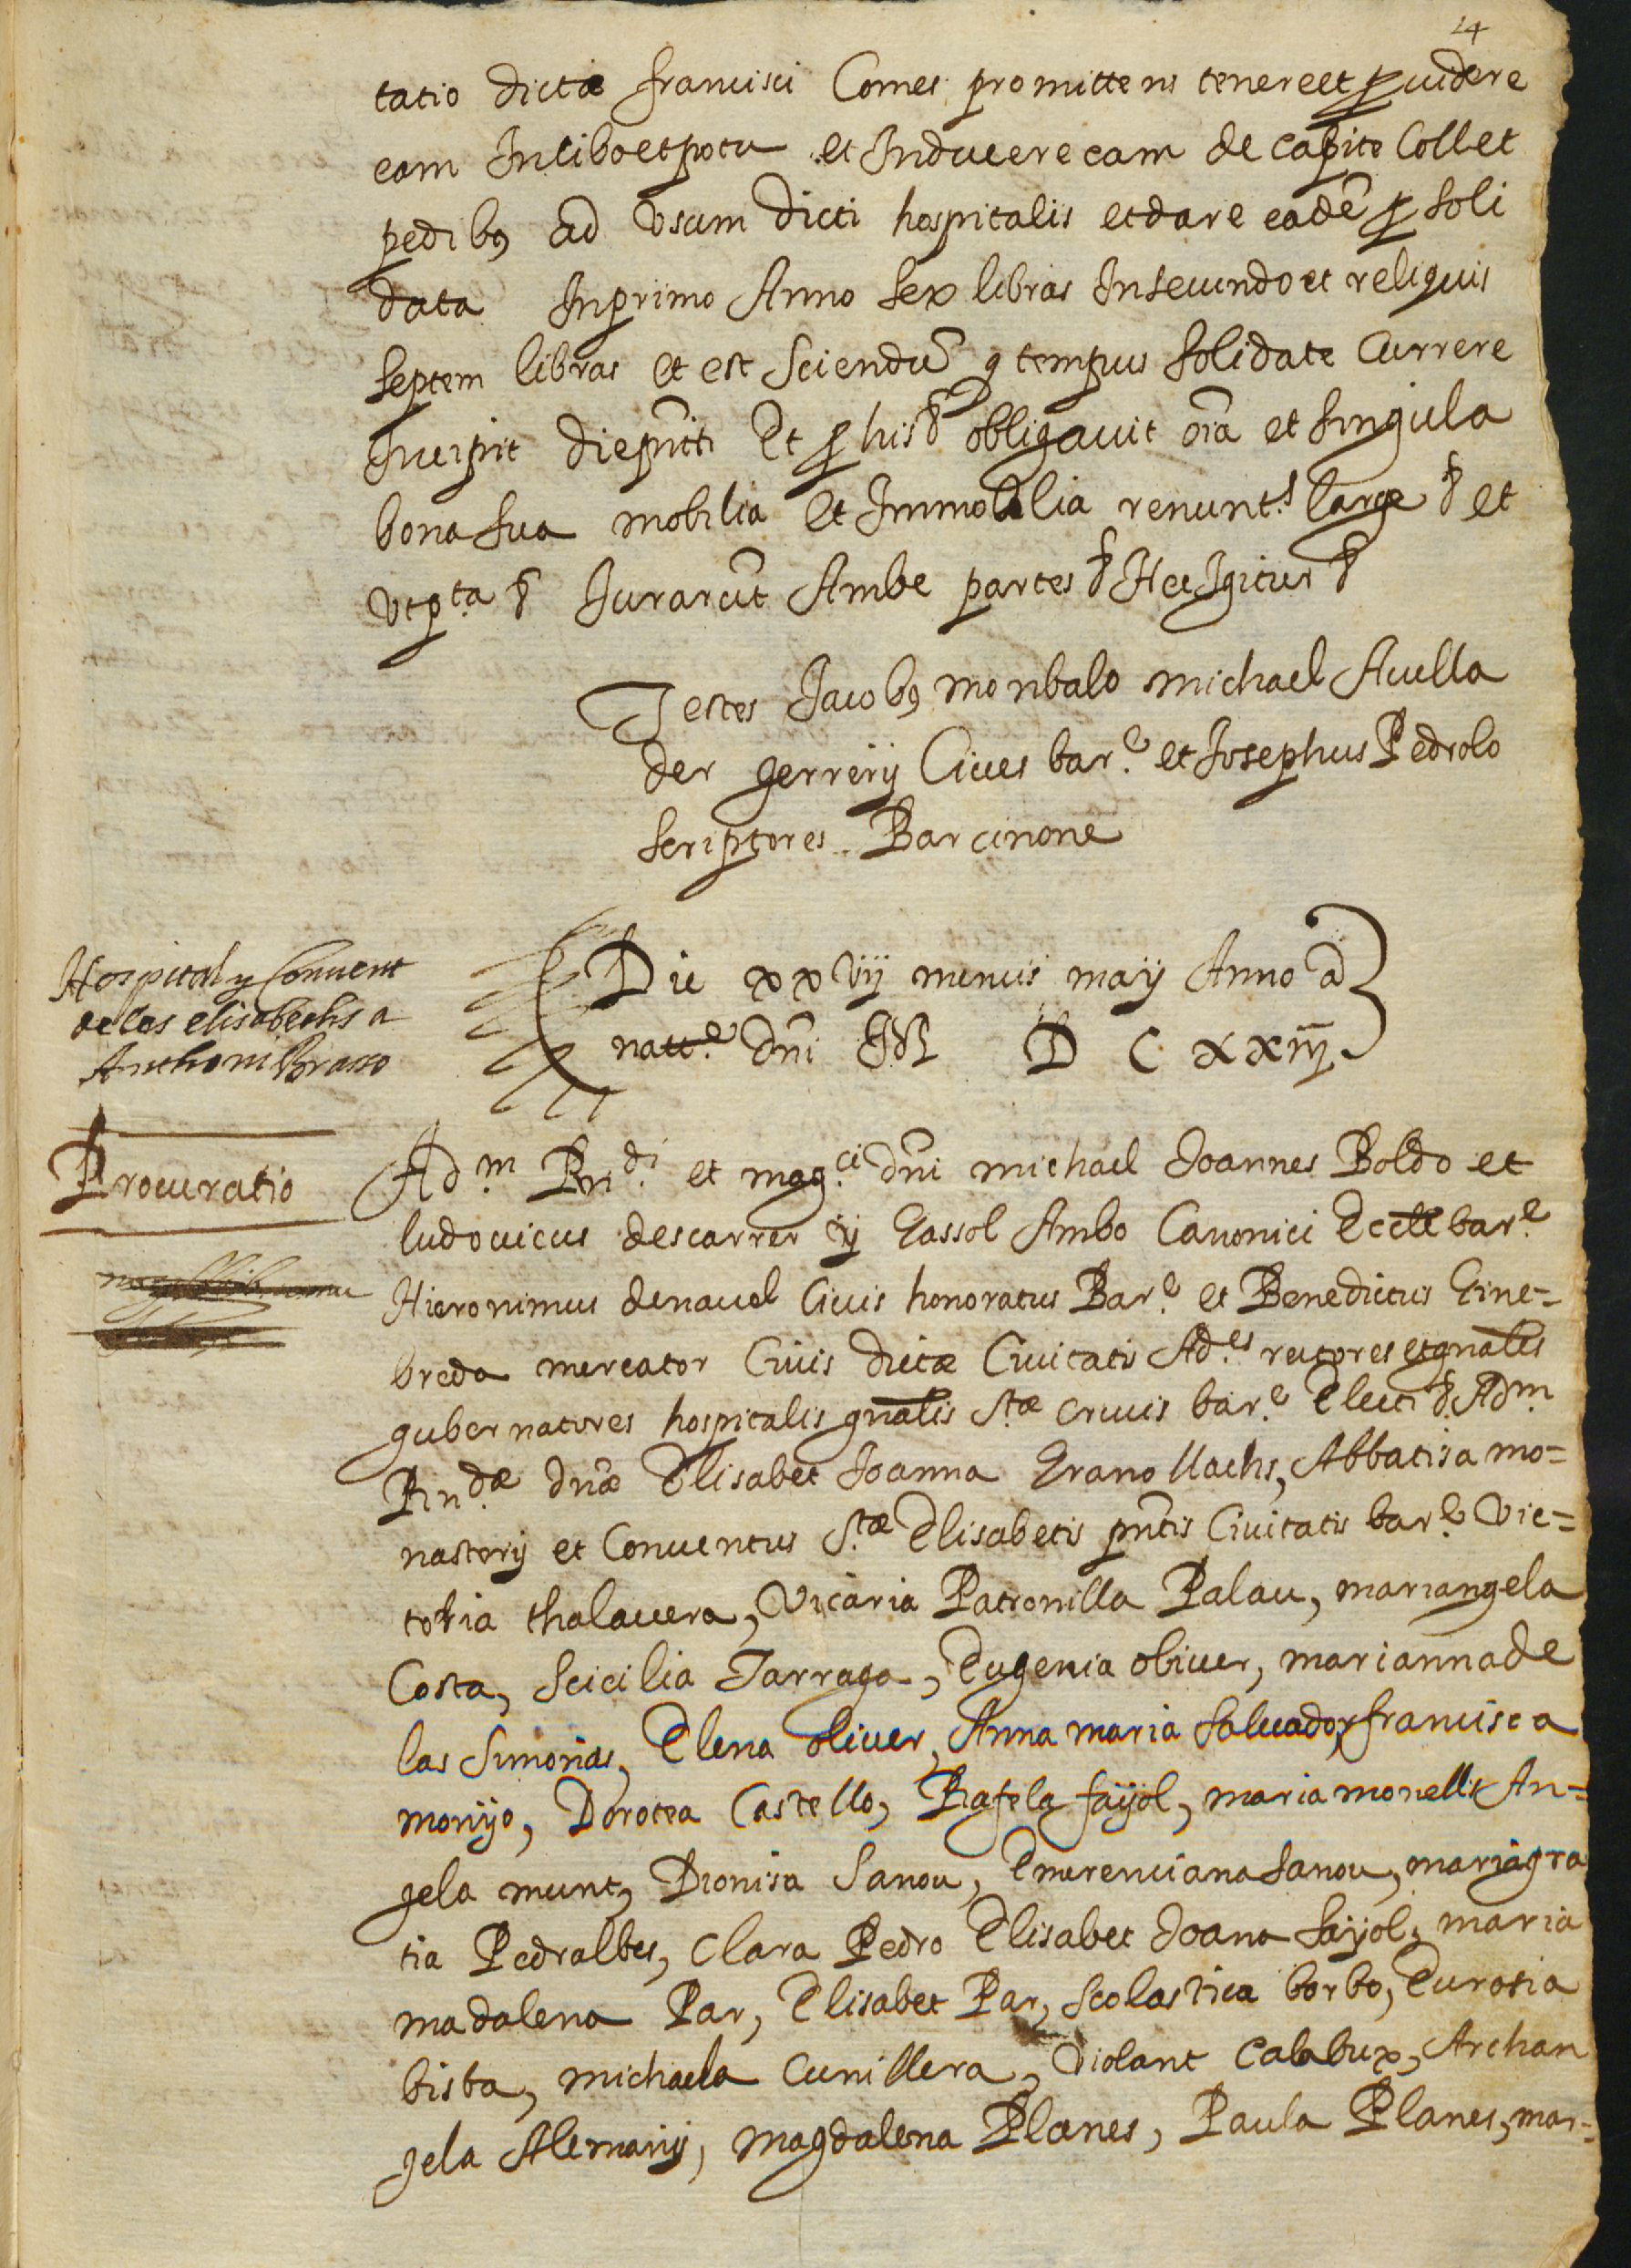 14
tatio dictæ francisci Comes promittens tenere et puidere
eam In cibo et potu et Inducere eam de capite Coll et
pedibꝯ ad Vsum dicti hospitalis et dare eadē p soli
data Inprimo Anno sex libras In secundo et reliquis
septem libras et est sciendū q tempus solidate Currere
Incipit die pñti Et p his & obligauit oīa et singula
bona sua mobilia et Immobilia renunt.s large & et
Vt pta & Jurarūt Ambe partes & Hec Igitur &
Testes Jacobꝯ monbalo michael Auella
der gerrerij Ciues bar.e et Josephus Pedrolo
scriptores Barcinone
Hospital y Conuent
de les elisabeths a
Anthoni Brasso
Die xxvij mensis maij Anno a
natt.e dñi M D C xxiij
Procuratio
Ad.m Rñ.di et mag.ci dñi michael Joannes Boldo et
ludouicus descarrer y Gassol Ambo Canonici Eccle bar.e
Hieronimus denauel Ciuis honoratus Bar.e et Benedictus Gine=
breda mercator Ciuis dictæ Ciuitatis Ad.es rectores et gnales
gubernatores hospitalis gnalis S.tæ crucis bar.e Elicti & Ad.m
Rñ.dæ dñæ Elisabet Joanna Granollachs, Abbatisa mo=
nasterij et Conuentus S.tæ Elisabetis pñtis Ciuitatis bar.e Vic=
toria thalauera, Vicaria Patronilla Palau, mariangela
Costa, Scicilia Tarraga, Eugenia oliuer, marianna de
las Simonas, Elena oliuer, Anna maria Saluador, francisca
monijo, Dorotea Castello, Rafela faijol, maria monells An=
gela munt, Dionisa Sanou, Emerenciana Sanou, maria gra
tia Pedralbes, Clara Pedro Elisabet Joana Saijol, maria
madalena Par, Elisabet Par, Scolastica borbo, Eurosia
bisba, michaela Cunillera, Violant Calabux, Archan
gela Alemany, magdalena Planes, Paula Planes, mar=